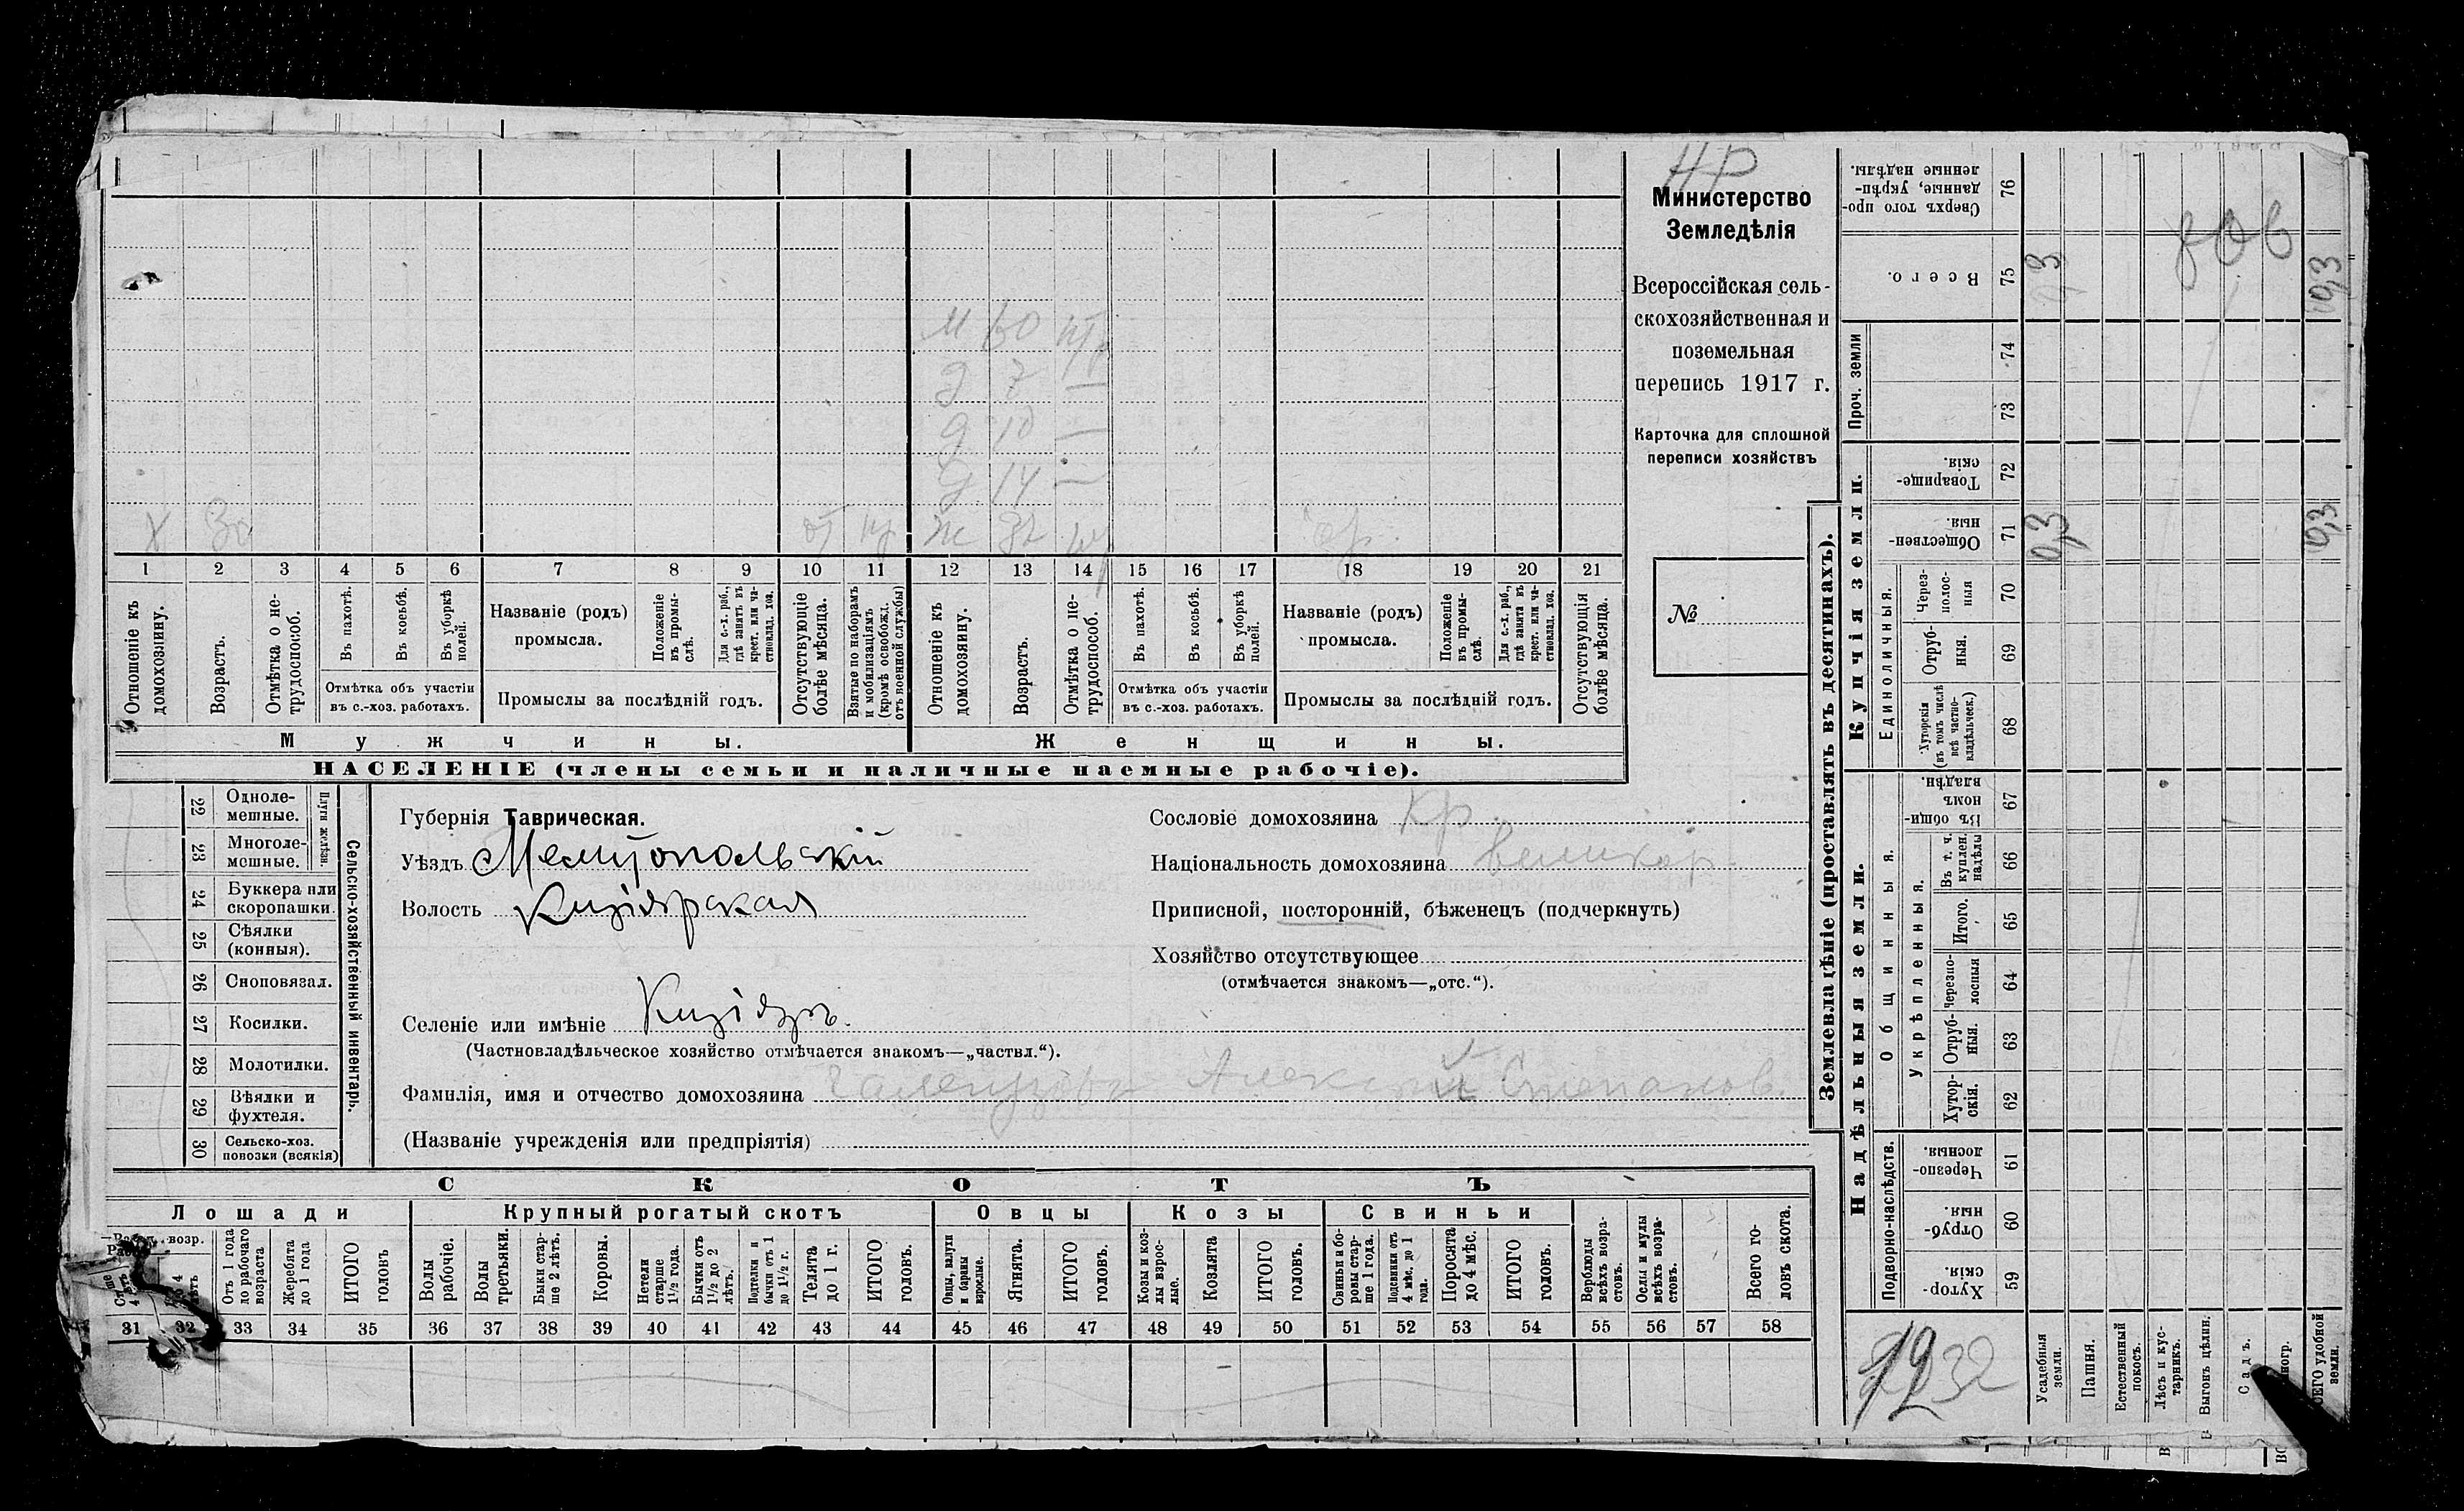 НР
Министерство
Земледѣлія
Всероссійская сель-
скохозяйственная и
поземельная
перепись 1917 г.
Карточка для сплошной
переписи хозяйствъ
№
М 60
д 7 —
д 10 —
д 14 —
х
ж
1 2 3 4 5 6 7 8 9 10 11 12 13 14 15 16 17 18 19 20 21
Отношеніе къ домохозяину.
Возрастъ.
Отмѣтка о не-трудоспособ.
Въ пахотѣ.
Въ косьбѣ.
Въ уборкѣ полей.
Отмѣтка объ участіи
въ с.-хоз. работахъ.
Названіе (родъ)
промысла.
Положеніе въ промы-слѣ.
Для с.-х. раб., гдѣ занятъ въ крест. или ча-стновлад. хоз.
Промыслы за послѣдній годъ.
Отсутствующіе болѣе мѣсяца.
Взятые по наборамъ и мобилизаціямъ (кромѣ освобожд. отъ военной службы)
Отношеніе къ домохозяину.
Возрастъ.
Отмѣтка о не-трудоспособ.
Въ пахотѣ.
Въ косьбѣ.
Въ уборкѣ полей.
Отмѣтка объ участіи
въ с.-хоз. работахъ.
Названіе (родъ)
промысла.
Положеніе въ промы-слѣ.
Для с.-х. раб., гдѣ занята въ крест. или ча-стновлад. хоз.
Промыслы за послѣдній годъ.
Отсутствующія болѣе мѣсяца.
Мужчины.
Женщины.
НАСЕЛЕНІЕ (члены семьи и наличные наемные рабочіе).
22 Одноле-мешные.
23 Многоле-мешные.
Плуги желѣзн.
24 Буккера или скоропашки.
25 Сѣялки (конныя).
26 Сноповязал.
27 Косилки.
28 Молотилки.
29 Вѣялки и фухтеля.
30 Сельско-хоз. повозки (всякія)
Сельско-хозяйственный инвентарь.
Губернія Таврическая.
Уѣздъ Мелитопольскій
Волость Кизіярская
Селеніе или имѣніе Кизіяръ.
(Частновладѣльческое хозяйство отмѣчается знакомъ—„частвл.“).
Фамилія, имя и отчество домохозяина Алексѣй Степанов.
(Названіе учрежденія или предпріятія)
Сословіе домохозяина Кр.
Національность домохозяина великор.
Приписной, посторонній, бѣженецъ (подчеркнуть)
Хозяйство отсутствующее
(отмѣчается знакомъ—„отс.“).
СКОТЪ
Лошади
Крупный рогатый скотъ
Овцы
Козы
Свиньи
Отъ 1 года до рабочаго возраста
Жеребята до 1 года
ИТОГО головъ
Волы рабочіе.
Волы третьяки.
Быки стар-ше 2 лѣтъ.
Коровы.
Нетели старше 1½ года.
Бычки отъ 1½ до 2 лѣтъ.
Подтелки и бычки отъ 1 до 1½ г.
Телята до 1 г.
ИТОГО головъ.
Овцы, валухи и бараны взрослые.
Ягнята.
ИТОГО головъ.
Козы и коз-лы взрос-лые.
Козлята
ИТОГО головъ.
Свиньи и бо-ровы стар-ше 1 года.
Подсвинки отъ 4 мѣс. до 1 года.
Поросята до 4 мѣс.
ИТОГО головъ.
Верблюды всѣхъ возра-стовъ.
Ослы и мулы всѣхъ возра-стовъ.
Всего го-ловъ скота.
31 32 33 34 35 36 37 38 39 40 41 42 43 44 45 46 47 48 49 50 51 52 53 54 55 56 57 58
Землевладѣніе (проставлять въ десятинахъ).
Сверхъ того про-данные, укрѣп-ленные надѣлы. 76
Всего. 75 0,3 0,3
Проч. земли
74
73
Купчія земли.
Товарище-скія. 72
Обществен-ныя. 71 0,3 0,3
Единоличныя.
Через-полос-ныя 70
Отруб-ныя. 69
Хуторскія (въ томъ числѣ всѣ частно-владѣльческ.) 68
Надѣльныя земли.
Общинныя.
Въ общи-номъ владѣн. 67
Укрѣпленныя.
Въ т. ч. куплен. надѣлы 66
Итого. 65
Черезпо-лосныя 64
Отруб-ныя. 63
Хутор-скія. 62
Подворно-наслѣдств.
Черезпо-лосныя. 61
Отруб-ныя. 60
Хутор-скія. 59
Усадебныя земли.
Пашня.
Естественный покосъ.
Лѣсъ и кус-тарникъ.
Выгонъ цѣлин.
Садъ.